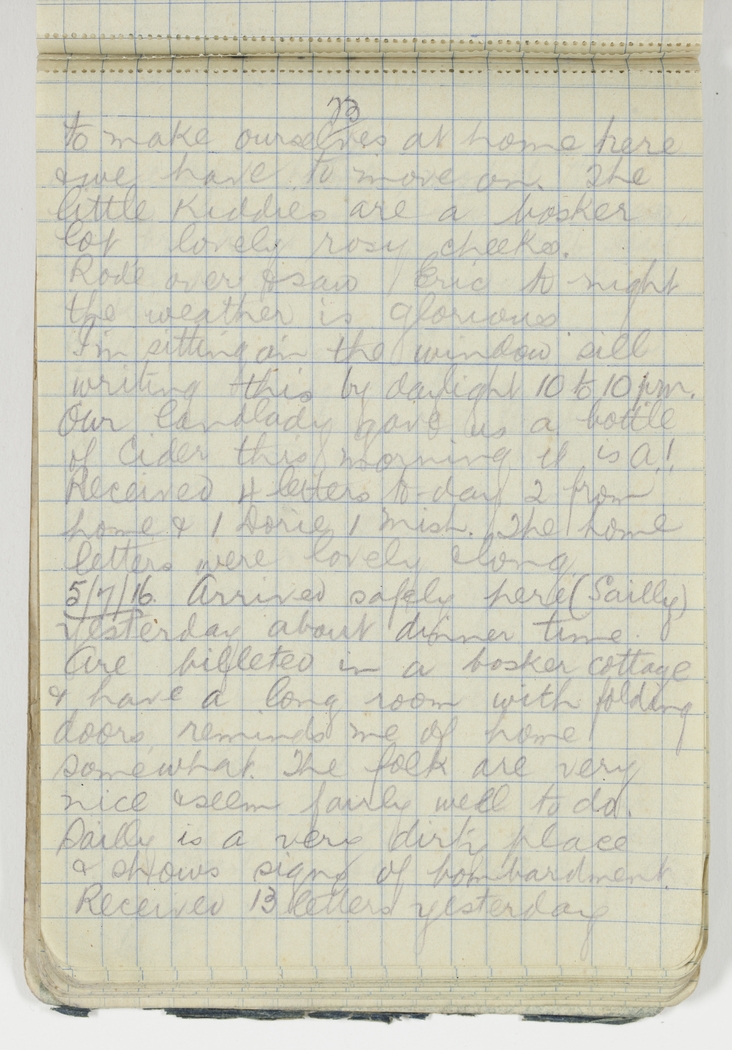 73
to make ourselves at home here
& we have to move on. The
little kiddies are a bosker
lot lovely rosy cheeks.
Rode over & saw Eric to night
the weather is glorious
I'm sitting in the window sill
writing this by daylight 10 to 10 p.m.
Our landlady gave us a bottle
of Cider this morning it is A.1
Received 4 letters to-day 2 from
home & 1 Dorie 1 Mish. The home
letters were lovely & long
5/7/16. Arrived safely here (Sailly)
yesterday about dinner time.
Are billeted in a bosker cottage
& have a long room with folding
doors reminds me of home
somewhat. The folk are very
nice & seem fairly well to do.
Sailly is a very dirty place
& shows signs of bombardment.
Received 13 letters yesterday